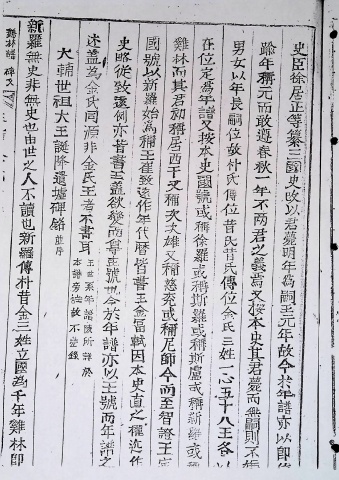 史臣徐居正等纂三國史改以君薨明年為嗣王元年故今於年譜亦以即位
踰年稱元而敢遵春秋一年不兩君之義焉又按本史其君薨而無嗣則不拘
男女以年長嗣位故朴氏傳位昔氏昔氏傳位金氏三姓一心五十八王各以
在位定為年譜又按本史國號或稱徐羅或稱斯羅或稱斯盧或稱新羅或稱
雞林而其君初稱居西干又稱次次雄又稱慈充或稱尼師今而至智證王定
國號以新羅始為稱王崔致遠作年代曆皆書王金富軾因本史直之權近作
史略從致遠例亦皆書王盖欲變而尊王號也今於年譜亦以王號而年譜之
述盖為金氏同源非金氏王者不書耳
大輔世祖大王誕降遺墟碑銘 並序
新羅無史非無史也由世之人不讀也新羅傳朴昔金三姓立國為千年雞林即
雞林譜 碑文